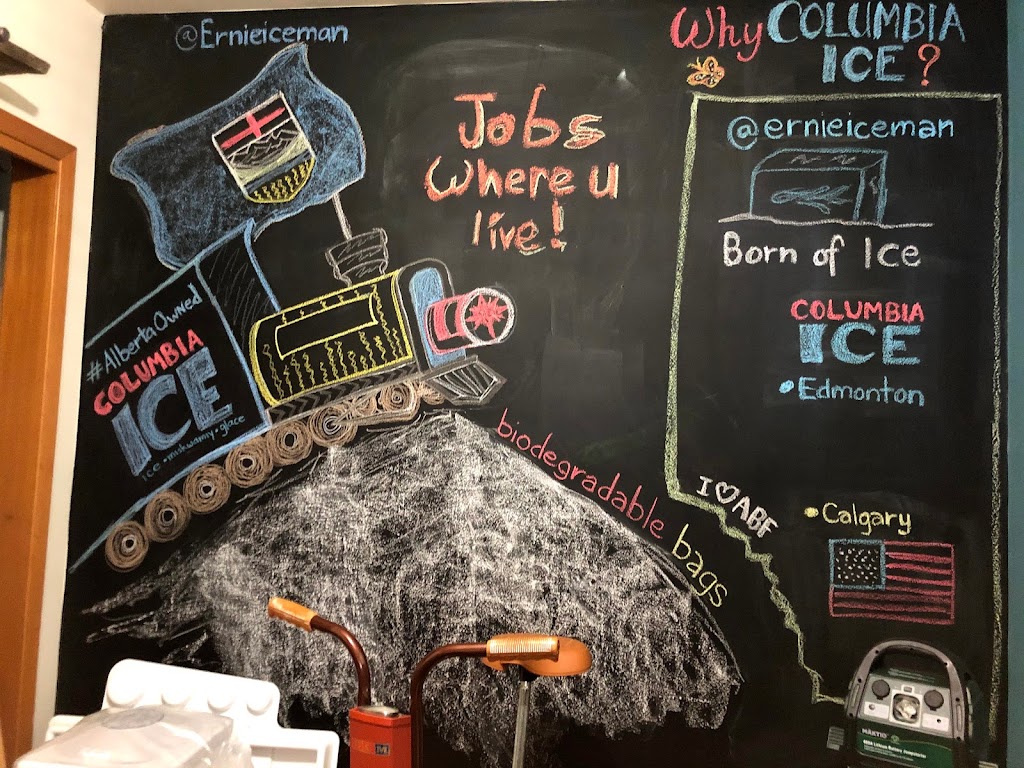 @Ernieiceman
Why COLUMBIA
ICE?
Jobs
Where u
live!
@ernieiceman
Born of Ice
COLUMBIA
ICE
Edmonton
#AlbertaOwned
COLUMBIA
ICE
ice • miskwamiy • glace
biodegradable bags
I ♡ ABF
Calgary